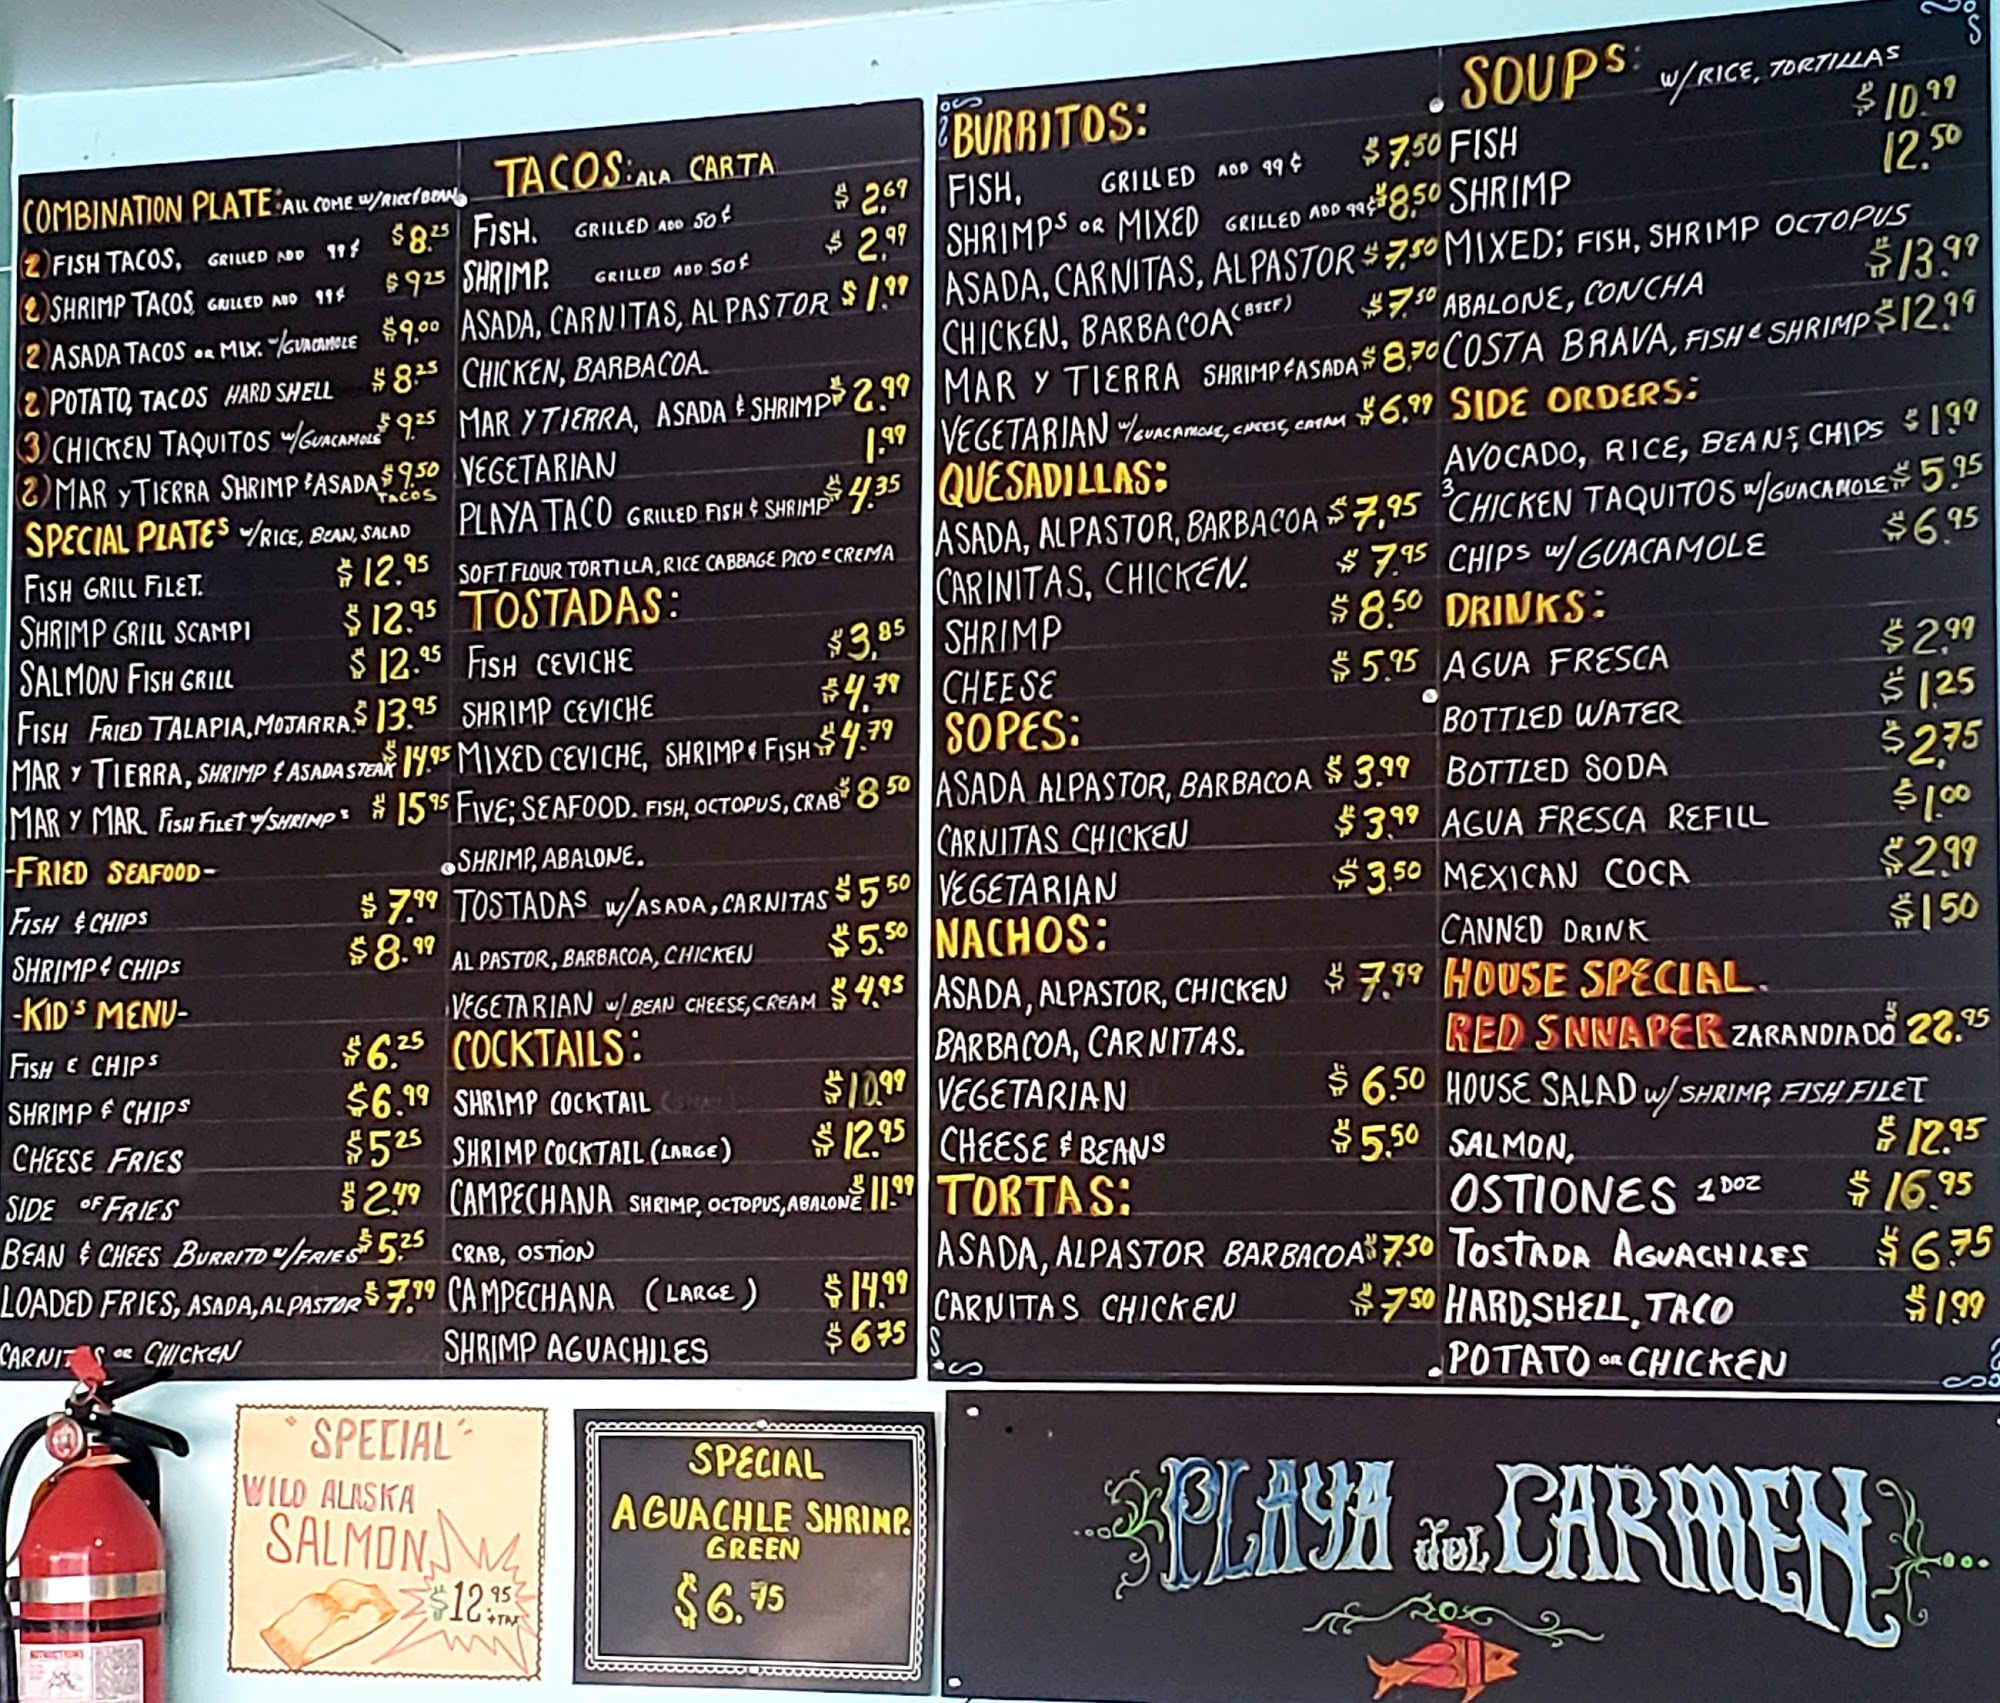 COMBINATION PLATE: ALL COME W/RICE/BEAN
2) FISH TACOS, GRILLED ADD 99¢ $8.25
2) SHRIMP TACOS, GRILLED ADD 99¢ $9.25
2) ASADA TACOS OR MIX. W/GUACAMOLE $9.00
2) POTATO, TACOS HARD SHELL $8.25
3) CHICKEN TAQUITOS W/GUACAMOLE $9.25
2) MAR Y TIERRA SHRIMP & ASADA $9.50
TACOS
SPECIAL PLATES W/RICE, BEAN, SALAD
FISH GRILL FILET. $12.95
SHRIMP GRILL SCAMPI $12.95
SALMON FISH GRILL $12.95
FISH FRIED TALAPIA, MOJARRA. $13.95
MAR Y TIERRA, SHRIMP & ASADA STEAK $14.95
MAR Y MAR FISH FILET W/SHRIMPS $15.95
-FRIED SEAFOOD-
FISH & CHIPS $7.99
SHRIMP & CHIPS $8.99
-KID'S MENU-
FISH & CHIPS $6.25
SHRIMP & CHIPS $6.99
CHEESE FRIES $5.25
SIDE OF FRIES $2.49
BEAN & CHEES BURRITO W/FRIES $5.25
LOADED FRIES, ASADA, AL PASTOR $7.99
CARNITAS OR CHICKEN
TACOS: ALA CARTA
FISH. GRILLED ADD 50¢ $2.69
SHRIMP. GRILLED ADD 50¢ $2.99
ASADA, CARNITAS, AL PASTOR $1.99
CHICKEN, BARBACOA.
MAR Y TIERRA, ASADA & SHRIMP $2.99
VEGETARIAN 1.99
PLAYA TACO GRILLED FISH & SHRIMP $4.35
SOFT FLOUR TORTILLA, RICE CABBAGE PICO & CREMA
TOSTADAS:
FISH CEVICHE $3.85
SHRIMP CEVICHE $4.79
MIXED CEVICHE, SHRIMP & FISH $4.79
FIVE; SEAFOOD. FISH, OCTOPUS, CRAB $8.50
SHRIMP, ABALONE.
TOSTADAS W/ASADA, CARNITAS $5.50
AL PASTOR, BARBACOA, CHICKEN $5.50
VEGETARIAN W/ BEAN CHEESE, CREAM $4.95
COCKTAILS:
SHRIMP COCKTAIL $10.99
SHRIMP COCKTAIL (LARGE) $12.95
CAMPECHANA SHRIMP, OCTOPUS, ABALONE $11.99
CRAB, OSTION
CAMPECHANA (LARGE) $14.99
SHRIMP AGUACHILES $6.75
BURRITOS:
FISH, GRILLED ADD 99¢ $7.50
SHRIMPS OR MIXED GRILLED ADD 99¢ $8.50
ASADA, CARNITAS, ALPASTOR $7.50
CHICKEN, BARBACOA (BEEF) $7.50
MAR Y TIERRA SHRIMP & ASADA $8.70
VEGETARIAN W/GUACAMOLE, CHEESE, CREAM $6.99
QUESADILLAS:
ASADA, ALPASTOR, BARBACOA $7.95
CARINITAS, CHICKEN. $7.95
SHRIMP $8.50
CHEESE $5.95
SOPES:
ASADA ALPASTOR, BARBACOA $3.99
CARNITAS CHICKEN $3.99
VEGETARIAN $3.50
NACHOS:
ASADA, ALPASTOR, CHICKEN $7.99
BARBACOA, CARNITAS.
VEGETARIAN $6.50
CHEESE & BEANS $5.50
TORTAS:
ASADA, ALPASTOR BARBACOA $7.50
CARNITAS CHICKEN $7.50
SOUPS: W/RICE, TORTILLAS
FISH $10.99
SHRIMP 12.50
MIXED; FISH, SHRIMP OCTOPUS
ABALONE, CONCHA $13.99
COSTA BRAVA, FISH & SHRIMP $12.99
SIDE ORDERS:
AVOCADO, RICE, BEANS, CHIPS $1.99
3 CHICKEN TAQUITOS W/GUACAMOLE $5.95
CHIPS W/GUACAMOLE $6.95
DRINKS:
AGUA FRESCA $2.99
BOTTLED WATER $1.25
BOTTLED SODA $2.75
AGUA FRESCA REFILL $1.00
MEXICAN COCA $2.99
CANNED DRINK $1.50
HOUSE SPECIAL.
RED SNNAPER ZARANDIADO $22.95
HOUSE SALAD W/ SHRIMP, FISH FILET
SALMON, $12.95
OSTIONES 1 DOZ $16.95
TOSTADA AGUACHILES $6.75
HARD, SHELL, TACO $1.99
POTATO OR CHICKEN
"SPECIAL"
WILD ALASKA
SALMON
$12.95
+TAX
SPECIAL
AGUACHLE SHRINP.
GREEN
$6.75
PLAYA del CARMEN